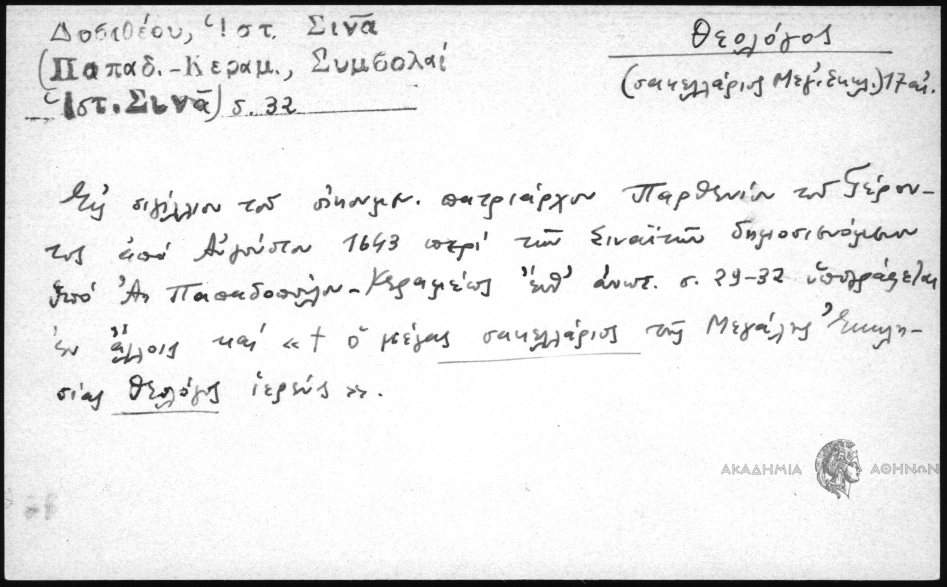 Δοσιθέου, Ἱστ. Σινᾶ
(Παπαδ.-Κεραμ., Συμβολαί
Ἱστ. Σινᾶ) σ. 32
Θεολόγος
(σακελλάριος Μεγ. Ἐκκλ.) 17 αἰ.
Εἰς σιγίλλιον τοῦ οἰκουμεν. πατριάρχου Παρθενίου τοῦ Γέρον-
τος ἀπό Αὐγούστου 1643 περί τῶν Σιναϊτῶν δημοσιευόμενον
ὑπό Ἀ. Παπαδοπούλου-Κεραμέως ἔνθ' ἀνωτ. σ. 29-32 ὑπογράφεται
ἐν ἄλλοις καί «† ὁ μέγας σακελλάριος τῆς Μεγάλης Ἐκκλη-
σίας Θεολόγος ἱερεύς».
ΑΚΑΔΗΜΙΑ ΑΘΗΝΩΝ